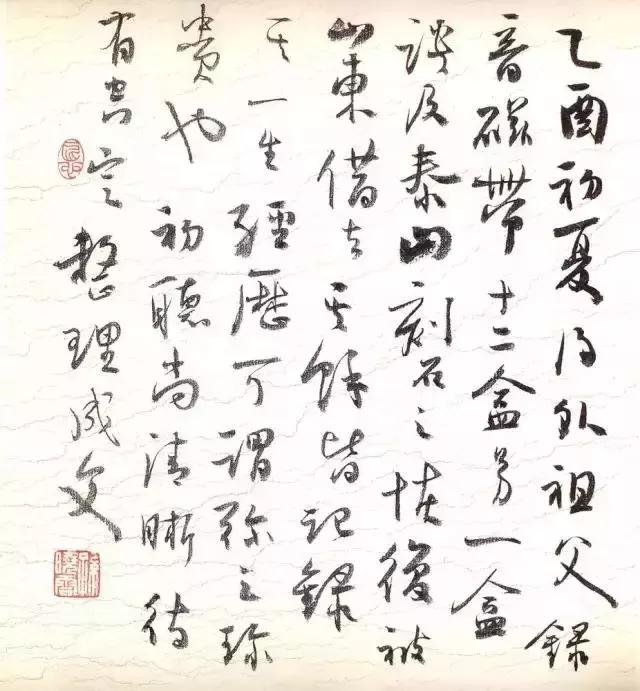 乙酉初夏得外祖父録
音磁帶十二盒另一盒
談及泰山刻石之恢復被
山東借去其餘皆記録
其一生經歷可謂弥足珎
貴也 初聽尚清晰待
有空定整理成文